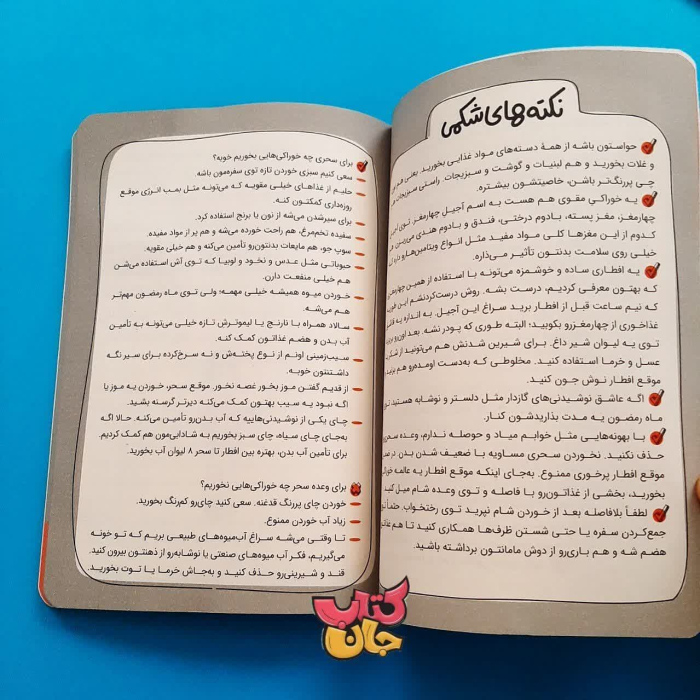 نکته‌های شکمی
حواستون باشه از همهٔ دسته‌های مواد غذایی بخورید. یعنی هم
و غلات بخورید و هم لبنیات و گوشت و سبزیجات. راستی سبزیجات
چی پررنگ‌تر باشن، خاصیتشون بیشتره.
یه خوراکی مقوی هم هست به اسم آجیل چهارمغز. توی
چهارمغز، مغز پسته، بادوم درختی، فندق و بادوم هندی می‌ریزن
کدوم از این مغزها کلی مواد مفید مثل انواع ویتامین‌ها رو
خیلی روی سلامت بدنتون تأثیر می‌ذاره.
یه افطاری ساده و خوشمزه می‌تونه با استفاده از همین چهارمغزی
که بهتون معرفی کردیم، درست بشه. روش درست‌کردنشم این
که نیم ساعت قبل از افطار برید سراغ این آجیل. به اندازه یه
غذاخوری از چهارمغز رو بکوبید؛ البته طوری که پودر نشه. بعد اون‌رو
توی یه لیوان شیر داغ. برای شیرین شدنش هم می‌تونید از
عسل و خرما استفاده کنید. مخلوطی که به‌دست اومده‌رو هم
موقع افطار نوش جون کنید.
اگه عاشق نوشیدنی‌های گازدار مثل دلستر و نوشابه هستید
ماه رمضون یه مدت بذاریدشون کنار.
با بهونه‌هایی مثل خوابم میاد و حوصله ندارم، وعده
حذف نکنید. نخوردن سحری مساویه با ضعیف شدن بدن
موقع افطار پرخوری ممنوع. به‌جای اینکه موقع افطار یه عالمه
بخورید، بخشی از غذاتون‌رو با فاصله و توی وعده شام میل
لطفاً بلافاصله بعد از خوردن شام نپرید توی رختخواب.
جمع‌کردن سفره یا حتی شستن ظرف‌ها همکاری کنید تا هم
هضم شه و هم باری‌رو از دوش مامانتون برداشته باشید.
برای سحری چه خوراکی‌هایی بخوریم خوبه؟
سعی کنیم سبزی خوردن تازه توی سفره‌مون باشه
حلیم از غذاهای خیلی مقویه که می‌تونه مثل بمب انرژی موقع
روزه‌داری کمکتون کنه.
برای سیرشدن می‌شه از نون یا برنج استفاده کرد.
سفیده تخم‌مرغ، هم راحت خورده می‌شه و هم پر از مواد مفیده.
سوپ جو، هم مایعات بدنتون‌رو تأمین می‌کنه و هم خیلی مقویه.
حبوباتی مثل عدس و نخود و لوبیا که توی آش استفاده می‌شن
هم خیلی منفعت دارن.
خوردن میوه همیشه خیلی مهمه؛ ولی توی ماه رمضون مهم‌تر
هم می‌شه.
سالاد همراه با نارنج یا لیموترش تازه خیلی می‌تونه به تأمین
آب بدن و هضم غذاتون کمک کنه.
سیب‌زمینی اونم از نوع پخته‌ش و نه سرخ‌کرده برای سیر نگه
داشتنتون خوبه.
از قدیم گفتن موز بخور غصه نخور. موقع سحر، خوردن یه موز یا
اگه نبود یه سیب بهتون کمک می‌کنه دیرتر گرسنه بشید.
چای یکی از نوشیدنی‌هاییه که آب بدن‌رو تأمین می‌کنه. حالا اگه
به‌جای چای سیاه، چای سبز بخوریم به شادابی‌مون هم کمک کردیم.
برای تأمین آب بدن، بهتره بین افطار تا سحر ۸ لیوان آب بخورید.
برای وعده سحر چه خوراکی‌هایی نخوریم؟
خوردن چای پررنگ قدغنه. سعی کنید چای‌رو کم‌رنگ بخورید.
زیاد آب خوردن ممنوع.
تا وقتی می‌شه سراغ آب‌میوه‌های طبیعی بریم که تو خونه
می‌گیریم، فکر آب میوه‌های صنعتی یا نوشابه‌رو از ذهنتون بیرون کنید.
قند و شیرینی‌رو حذف کنید و به‌جاش خرما یا توت بخورید.
کتاب
جان